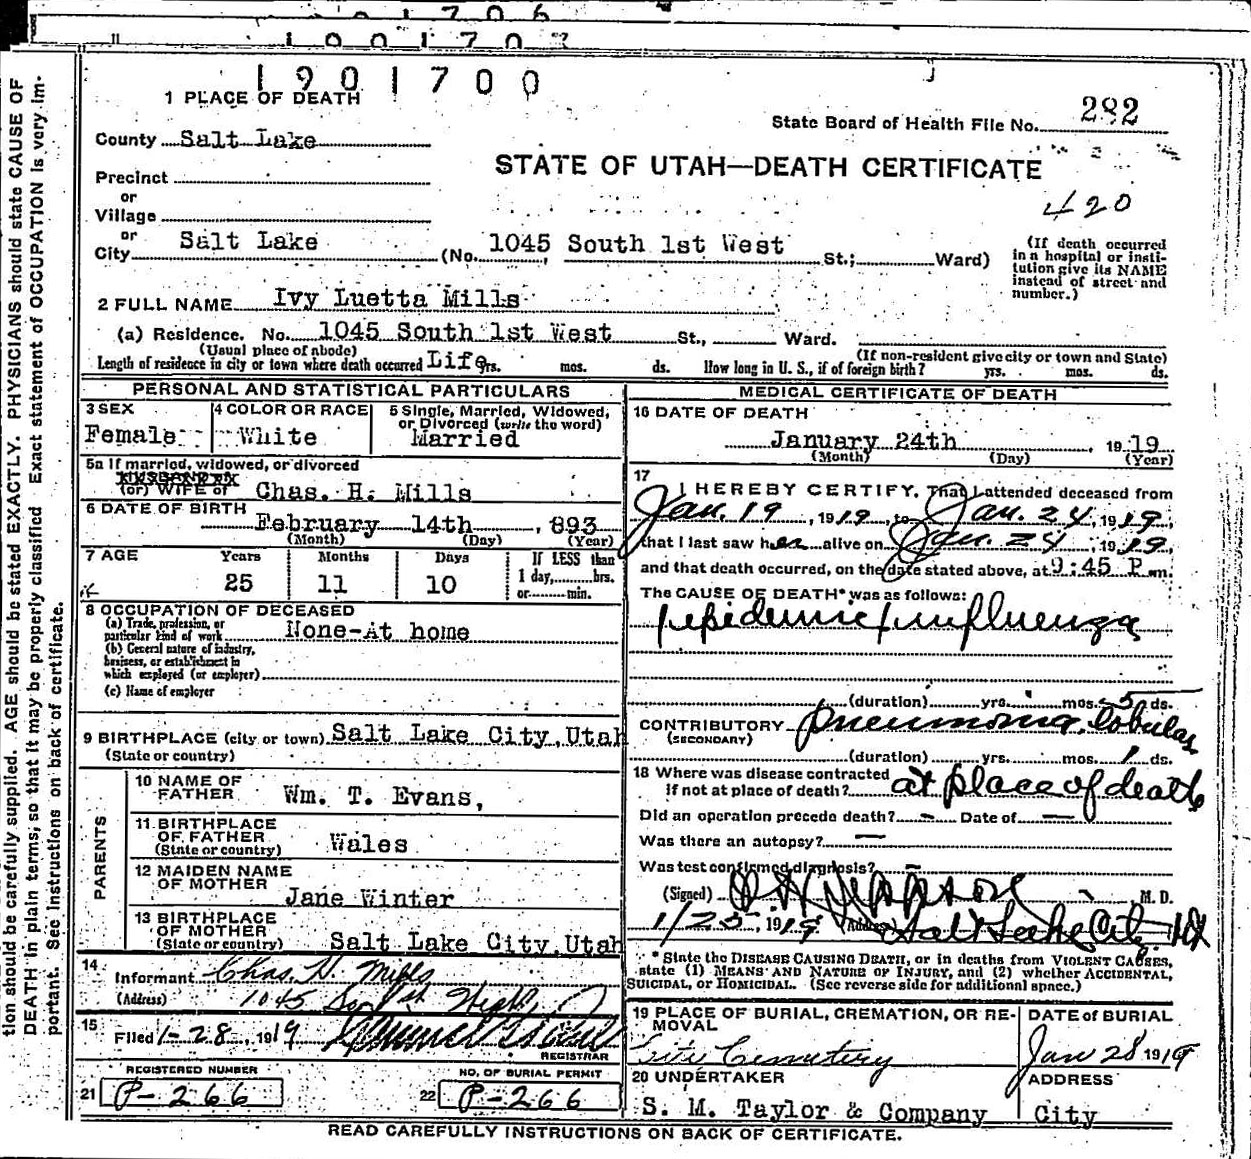 1901700
1 PLACE OF DEATH
State Board of Health File No. 282
County Salt Lake
STATE OF UTAH—DEATH CERTIFICATE
Precinct
or
Village
420
or
City Salt Lake (No. 1045 South 1st West St.; Ward)
(If death occurred
in a hospital or insti-
tution give its NAME
instead of street and
number.)
2 FULL NAME Ivy Luetta Mills
(a) Residence. No. 1045 South 1st West St., Ward.
(Usual place of abode) (If non-resident give city or town and State)
Length of residence in city or town where death occurred Life yrs. mos. ds. How long in U. S., if of foreign birth? yrs. mos. ds.
PERSONAL AND STATISTICAL PARTICULARS
3 SEX
Female
4 COLOR OR RACE
White
5 Single, Married, Widowed,
or Divorced (write the word)
Married
5a If married, widowed, or divorced
(or) WIFE of Chas. H. Mills
6 DATE OF BIRTH
February 14th, 893
(Month) (Day) (Year)
7 AGE Years Months Days
25 11 10
If LESS than
1 day, hrs.
or min.
8 OCCUPATION OF DECEASED
(a) Trade, profession, or
particular kind of work None-At home
(b) General nature of industry,
business, or establishment in
which employed (or employer)
(c) Name of employer
9 BIRTHPLACE (city or town) Salt Lake City, Utah
(State or country)
PARENTS
10 NAME OF
FATHER Wm. T. Evans,
11 BIRTHPLACE
OF FATHER
(State or country) Wales
12 MAIDEN NAME
OF MOTHER
Jane Winter
13 BIRTHPLACE
OF MOTHER
(State or country) Salt Lake City, Utah
14
Informant Chas. H. Mills
(Address) 1045 So 1st West
15
Filed 1-28, 1919
REGISTRAR
REGISTERED NUMBER
21 P-266
NO. OF BURIAL PERMIT
22 P-266
MEDICAL CERTIFICATE OF DEATH
16 DATE OF DEATH
January 24th 1919
(Month) (Day) (Year)
17
I HEREBY CERTIFY, That I attended deceased from
Jan. 19, 1919, to Jan. 24, 1919,
that I last saw her alive on Jan. 24, 1919,
and that death occurred, on the date stated above, at 9:45 P.m.
The CAUSE OF DEATH* was as follows:
epidemic influenza
(duration) yrs. mos. 5 ds.
CONTRIBUTORY pneumonia, lobular
(SECONDARY)
(duration) yrs. mos. 1 ds.
18 Where was disease contracted
if not at place of death? at place of death
Did an operation precede death? – Date of —
Was there an autopsy? —
Was test confirmed diagnosis? –
(Signed) M. D.
1/25, 1919 (Address) Salt Lake City, Ut
* State the DISEASE CAUSING DEATH, or in deaths from VIOLENT CAUSES,
state (1) MEANS AND NATURE OF INJURY, and (2) whether ACCIDENTAL,
SUICIDAL, or HOMICIDAL. (See reverse side for additional space.)
19 PLACE OF BURIAL, CREMATION, OR RE-
MOVAL
City Cemetery
DATE of BURIAL
Jan 28 1919
20 UNDERTAKER
S. M. Taylor & Company
ADDRESS
City
READ CAREFULLY INSTRUCTIONS ON BACK OF CERTIFICATE.
tion should be carefully supplied. AGE should be stated EXACTLY. PHYSICIANS should state CAUSE OF
DEATH in plain terms, so that it may be properly classified. Exact statement of OCCUPATION is very im-
portant. See instructions on back of certificate.